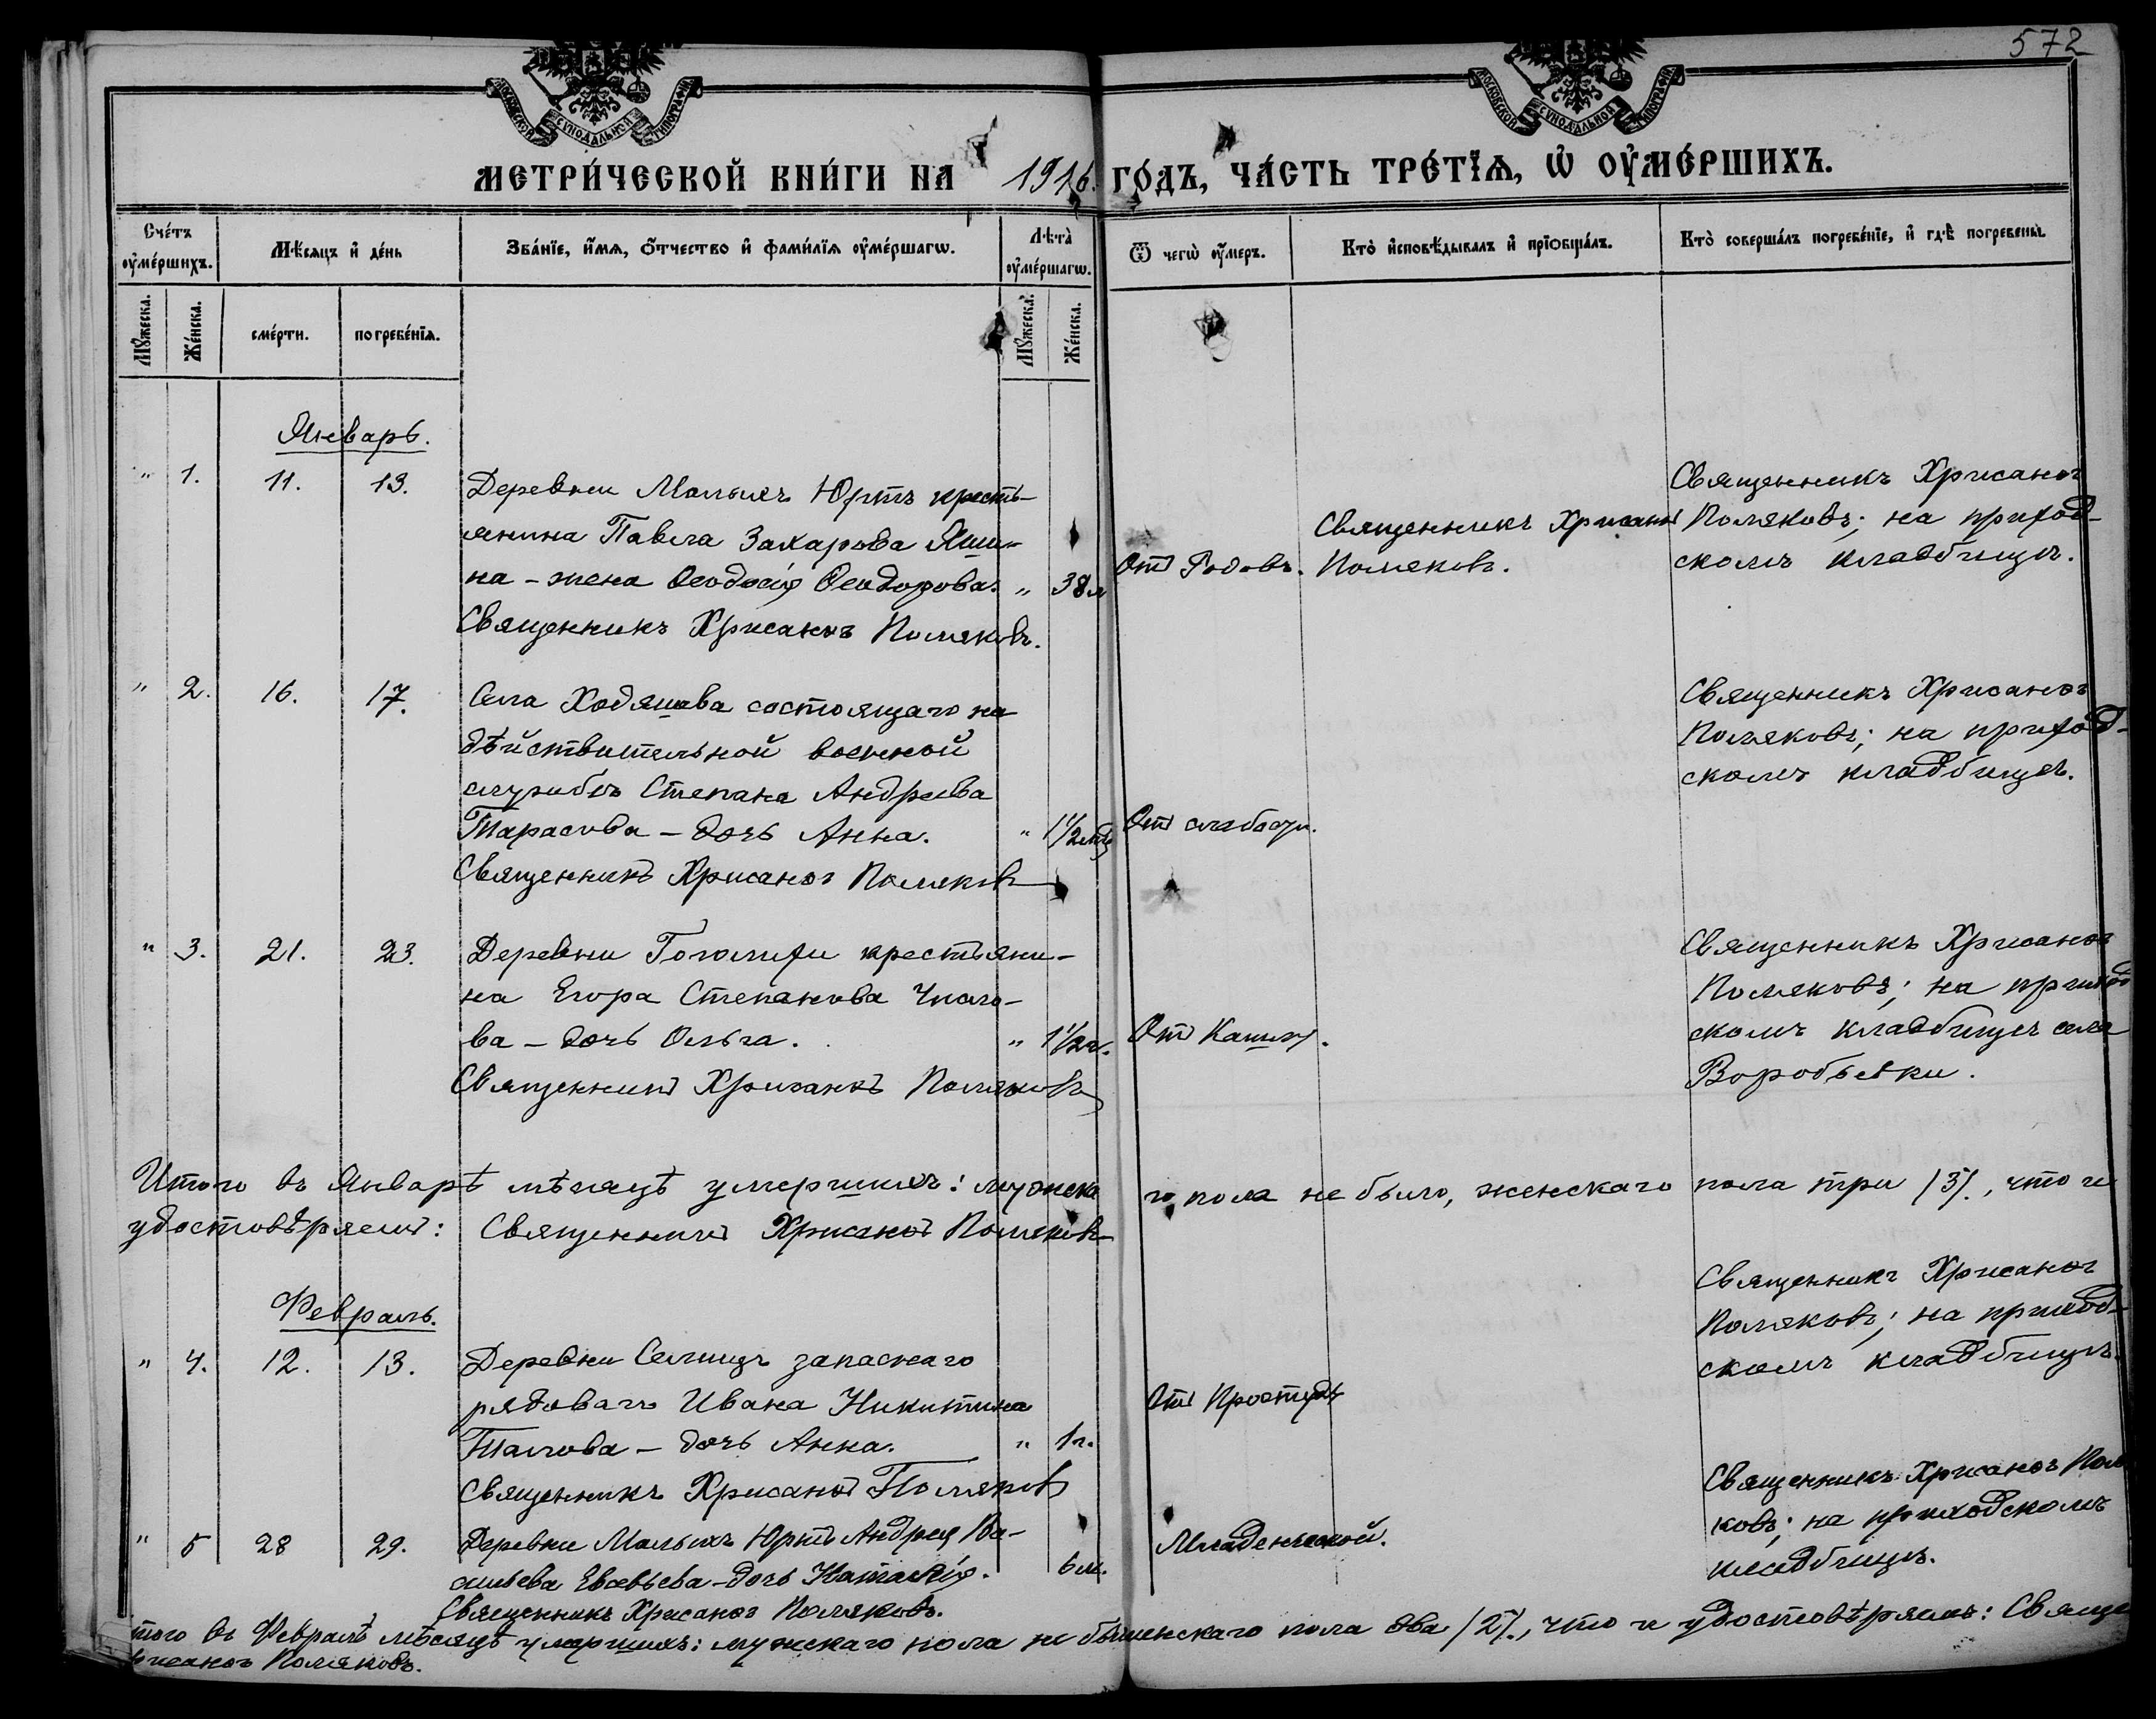 572
МОСКОВСКОЙ СѴНОДАЛЬНОЙ ТИПОГРАФІИ
МОСКОВСКОЙ СѴНОДАЛЬНОЙ ТИПОГРАФІИ
МЕТРИ́ЧЕСКОЙ КНИ́ГИ НА 1916. ГО́ДЪ, ЧА́СТЬ ТРЕ́ТЇѦ, Ѡ҆ ОУ҆МЕ́РШИХЪ.
Сче́тъ оу҆ме́ршихъ.
Мѣ́сяцъ и҆ де́нь
Зва́нїе, и҆́мѧ, ѻ҆́тчество и҆ фами́лїѧ оу҆ме́ршагѡ.
Лѣта̀ оу҆ме́ршагѡ.
Ѿ чегѡ̀ оу҆́меръ.
Кто̀ и҆сповѣ́дывалъ и҆ прїѡбща́лъ.
Кто̀ соверша́лъ погребе́нїе, и҆ гдѣ̀ погребены̀.
Мꙋ́жеска.
Же́нска.
сме́рти.
погребе́нїѧ.
Мꙋ́жеска.
Же́нска.
Январь.
" 1. 11. 13. Деревни Малыхъ Юртъ кресть-
янина Павла Захарова Яши-
на - жена Ѳеодосія Ѳеодорова. " 38 л
Священникъ Хрисанѳъ Поляковъ.
Отъ Родовъ.
Священникъ Хрисанѳъ
Поляковъ.
Священникъ Хрисанѳъ
Поляковъ; на приход-
скомъ кладбищѣ.
" 2. 16. 17. Села Ходяшева состоящаго на
дѣйствительной военной
службѣ Степана Андреева
Тарасова - дочь Анна. " 1 1/2 мѣс
Священникъ Хрисанѳъ Поляковъ
Отъ слабости.
Священникъ Хрисанѳъ
Поляковъ; на приход-
скомъ кладбищѣ.
" 3. 21. 23. Деревни Гоголихи крестьяни-
на Егора Степанова
ва - дочь Ольга. " 1 1/2 г.
Священникъ Хрисанѳъ Поляковъ
Отъ Кашля.
Священникъ Хрисанѳъ
Поляковъ; на приход
скомъ кладбищѣ села
Воробьевки.
Итого въ Январѣ мѣсяцѣ умершихъ: мужска го пола не было, женскаго пола три /3/, что и
удостовѣряемъ: Священникъ Хрисанѳъ Поляковъ
Февраль.
" 4. 12. 13. Деревни Селищъ запаснаго
рядоваго Ивана Никитина
Талова - дочь Анна. " 1 г.
Священникъ Хрисанѳъ Поляковъ
Отъ Простуды
Священникъ Хрисанѳъ
Поляковъ; на приход-
скомъ кладбищѣ.
" 5 28 29. Деревни Малыхъ Юртъ Андрея Ва-
сильева Евсѣева - дочь Наталія. 6 м.
Священникъ Хрисанѳъ Поляковъ.
Младенческой.
Священникъ Хрисанѳъ Поля
ковъ; на приходскомъ
кладбищѣ.
того въ Февралѣ мѣсяцѣ умершихъ: мужскаго пола не бы женскаго пола два /2/, что и удостовѣряемъ: Свяще
рисанѳъ Поляковъ.